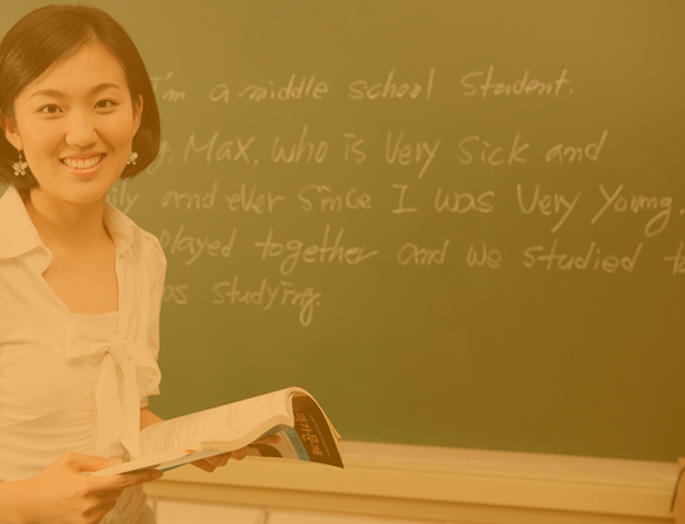 I'm a middle school Student.
Max, who is Very Sick and
and ever Since I was Very Young.
Played together and we studied to
as studying.